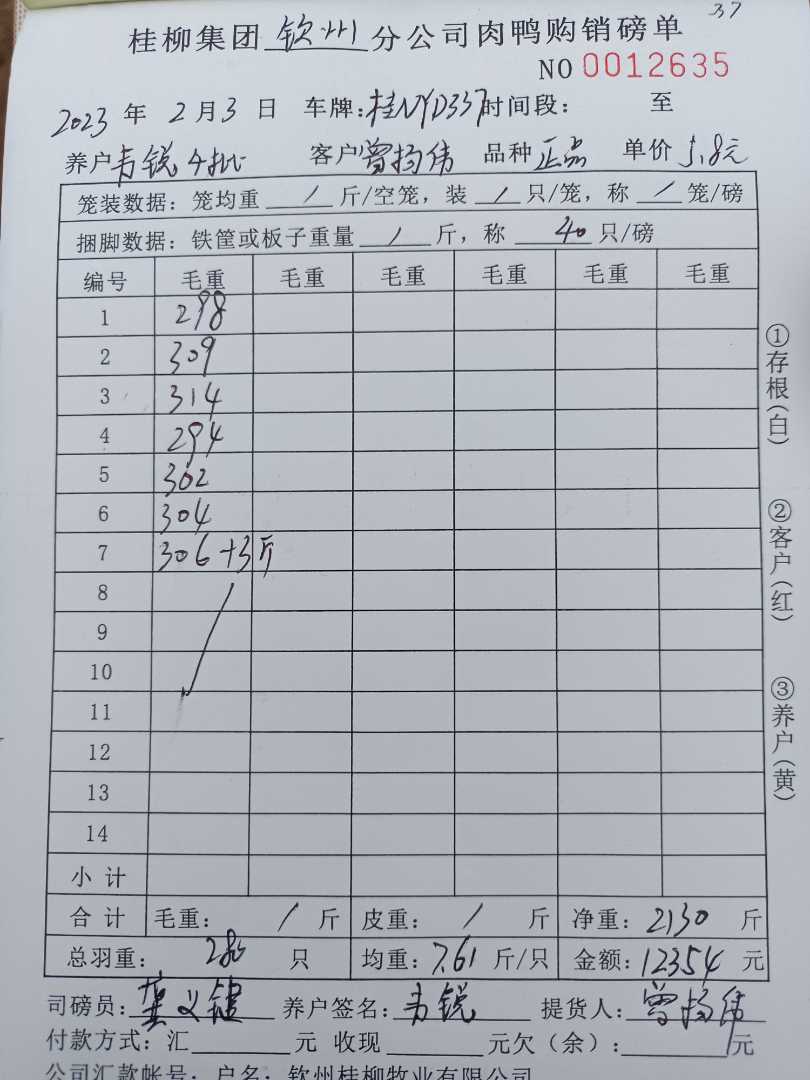 37
桂柳集团钦州分公司肉鸭购销磅单
NO 0012635
2023年2月3日 车牌:桂NYD337时间段: 至
养户韦锐4批 客户曾扬伟 品种正品 单价5.8元
笼装数据: 笼均重 / 斤/空笼, 装 / 只/笼, 称 / 笼/磅
捆脚数据: 铁筐或板子重量 / 斤, 称 40 只/磅
编号 毛重 毛重 毛重 毛重 毛重 毛重
1 298
2 309
3 314
4 294
5 302
6 304
7 306+3斤
8
9
10
11
12
13
14
小计
合计 毛重: / 斤 皮重: / 斤 净重: 2130 斤
总羽重: 280 只 均重: 7.61 斤/只 金额: 12354 元
司磅员: 龚义键 养户签名: 韦锐 提货人: 曾扬伟
付款方式: 汇 元 收现 元欠(余): 元
公司汇款帐号: 户名: 钦州桂柳牧业有限公司
①存根(白)
②客户(红)
③养户(黄)